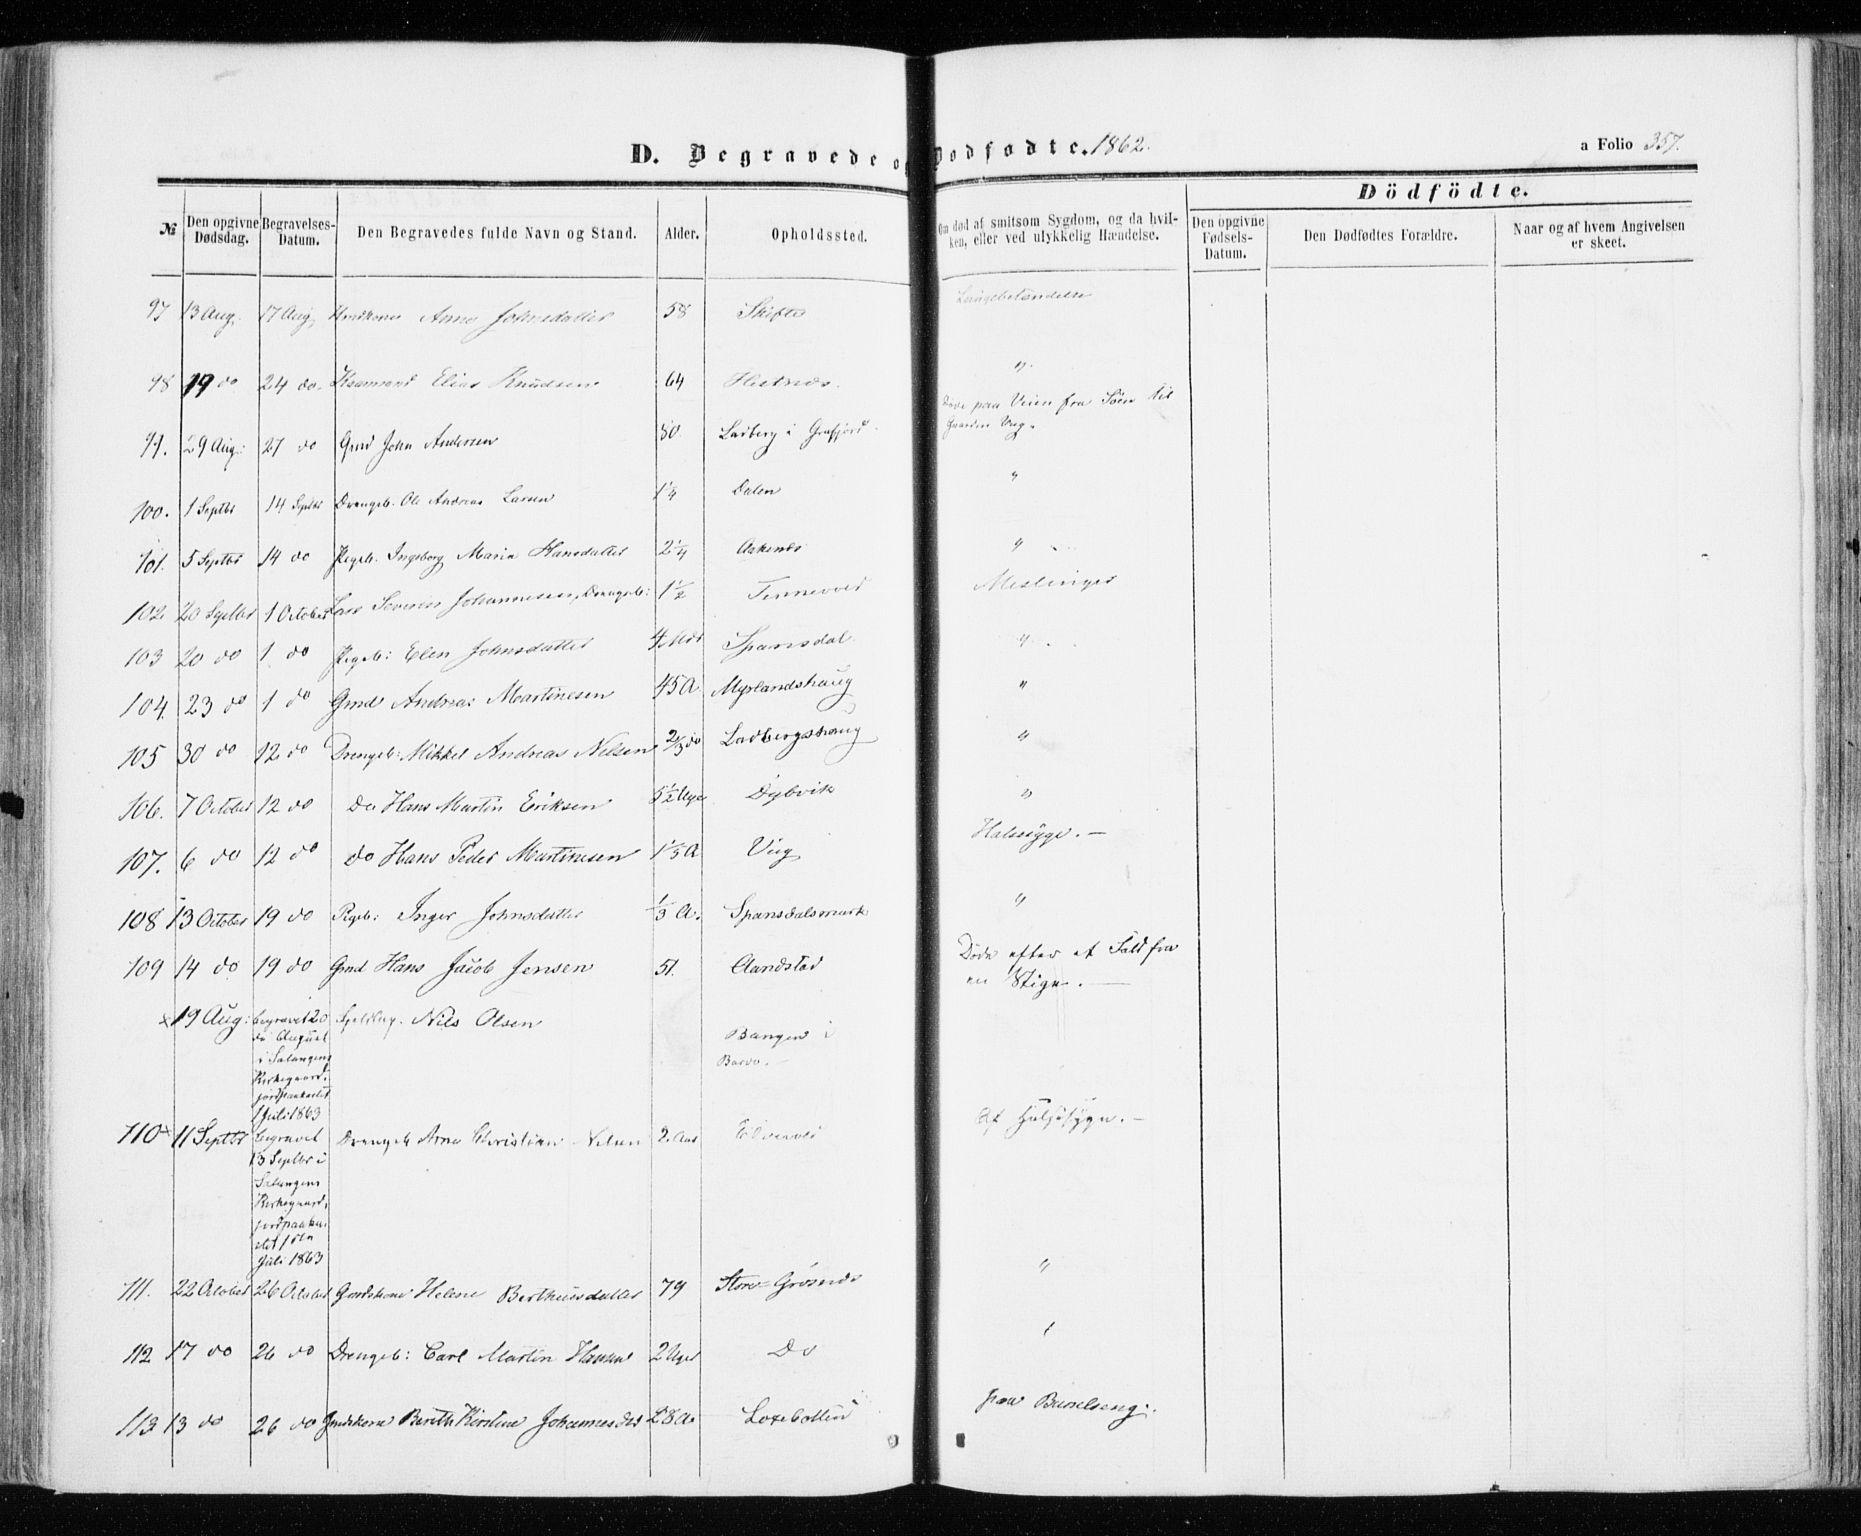 D. Begravede og Dødfødte. 1862. a Folio 357.
Dödfödte.
№ Den opgivne Dødsdag. Begravelses-Datum. Den Begravedes fulde Navn og Stand. Alder. Opholdssted. Om død af smitsom Sygdom, og da hvilken, eller ved ulykkelig Hændelse. Den opgivne Fødsels-Datum. Den Dødfødtes Forældre. Naar og af hvem Angivelsen er skeet.
97 13 Aug. 17 Aug Anne Johnsdatter 58 Lungebetændelse
98 19 do 24 do. Elias Knudsen 64 "
Døde paa Veien fra Söen til
99. 29 Aug: 27 do Gmd John Andersen 50 Ladberg i Gratfjord Gaarden Vug.
100. 1 Septbr 14 Septbr Drengeb. Ole Andreas Larsen 1¼ Dalen "
101. 5 Septbr 14 do Pigeb. Ingeborg Maria Hansdatter 2¼ "
102 20 Septbr 1 October Severin Johannesen, Drengeb: 1½ Tennevold Meslinger
103 20 do 1 do Pigeb: Elen Johnsdatter 4 Mdr Spansdal "
104. 23 do 1 do Gmd Andreas Martinesen 45 A Myrlandshaug "
105 30 do 12 do Drengeb: Mikkel Andreas Nilsen 2/3 do Ladbergshaug "
106. 7 October 12 do Do Hans Martin Eriksen 5½ Uger Dybvik "
107. 6 do 12 do do Hans Peder Martinesen 1⅓ A Vug Halssyge. —
108 13 October 19 do Pigeb: Inger Johnsdatter ⅓ A. Spansdalsmark "
109 14 do 19 do Gmd Hans Jacob Jensen 51. Aandstad Døde efter et Fald fra
en Stige. —
× 19 Aug: begravet 20 Nils Olsen Bangen i
de August Bardo. —
i Salangens
Kirkegaard,
jordpaakastet
1 Juli 1863
110 × 11 Septbr begravet Drengeb Arne Christian Nilsen 2 Aar Elvevold Af Halssyge. —
13 Septbr i
Salangens
Kirkegaard,
jordpaaka-
stet 1ste
Juli 1863
111. 22 October 26 October Gaardkone Helene Bertheusdatter 79 Store-Grösnes "
112 17 do 26 do Drengeb: Carl Martin Hansen 2 Uger Do "
113 13 do 26 do Berith Kirstine Johannesdtr 28 A. paa Barselseng.